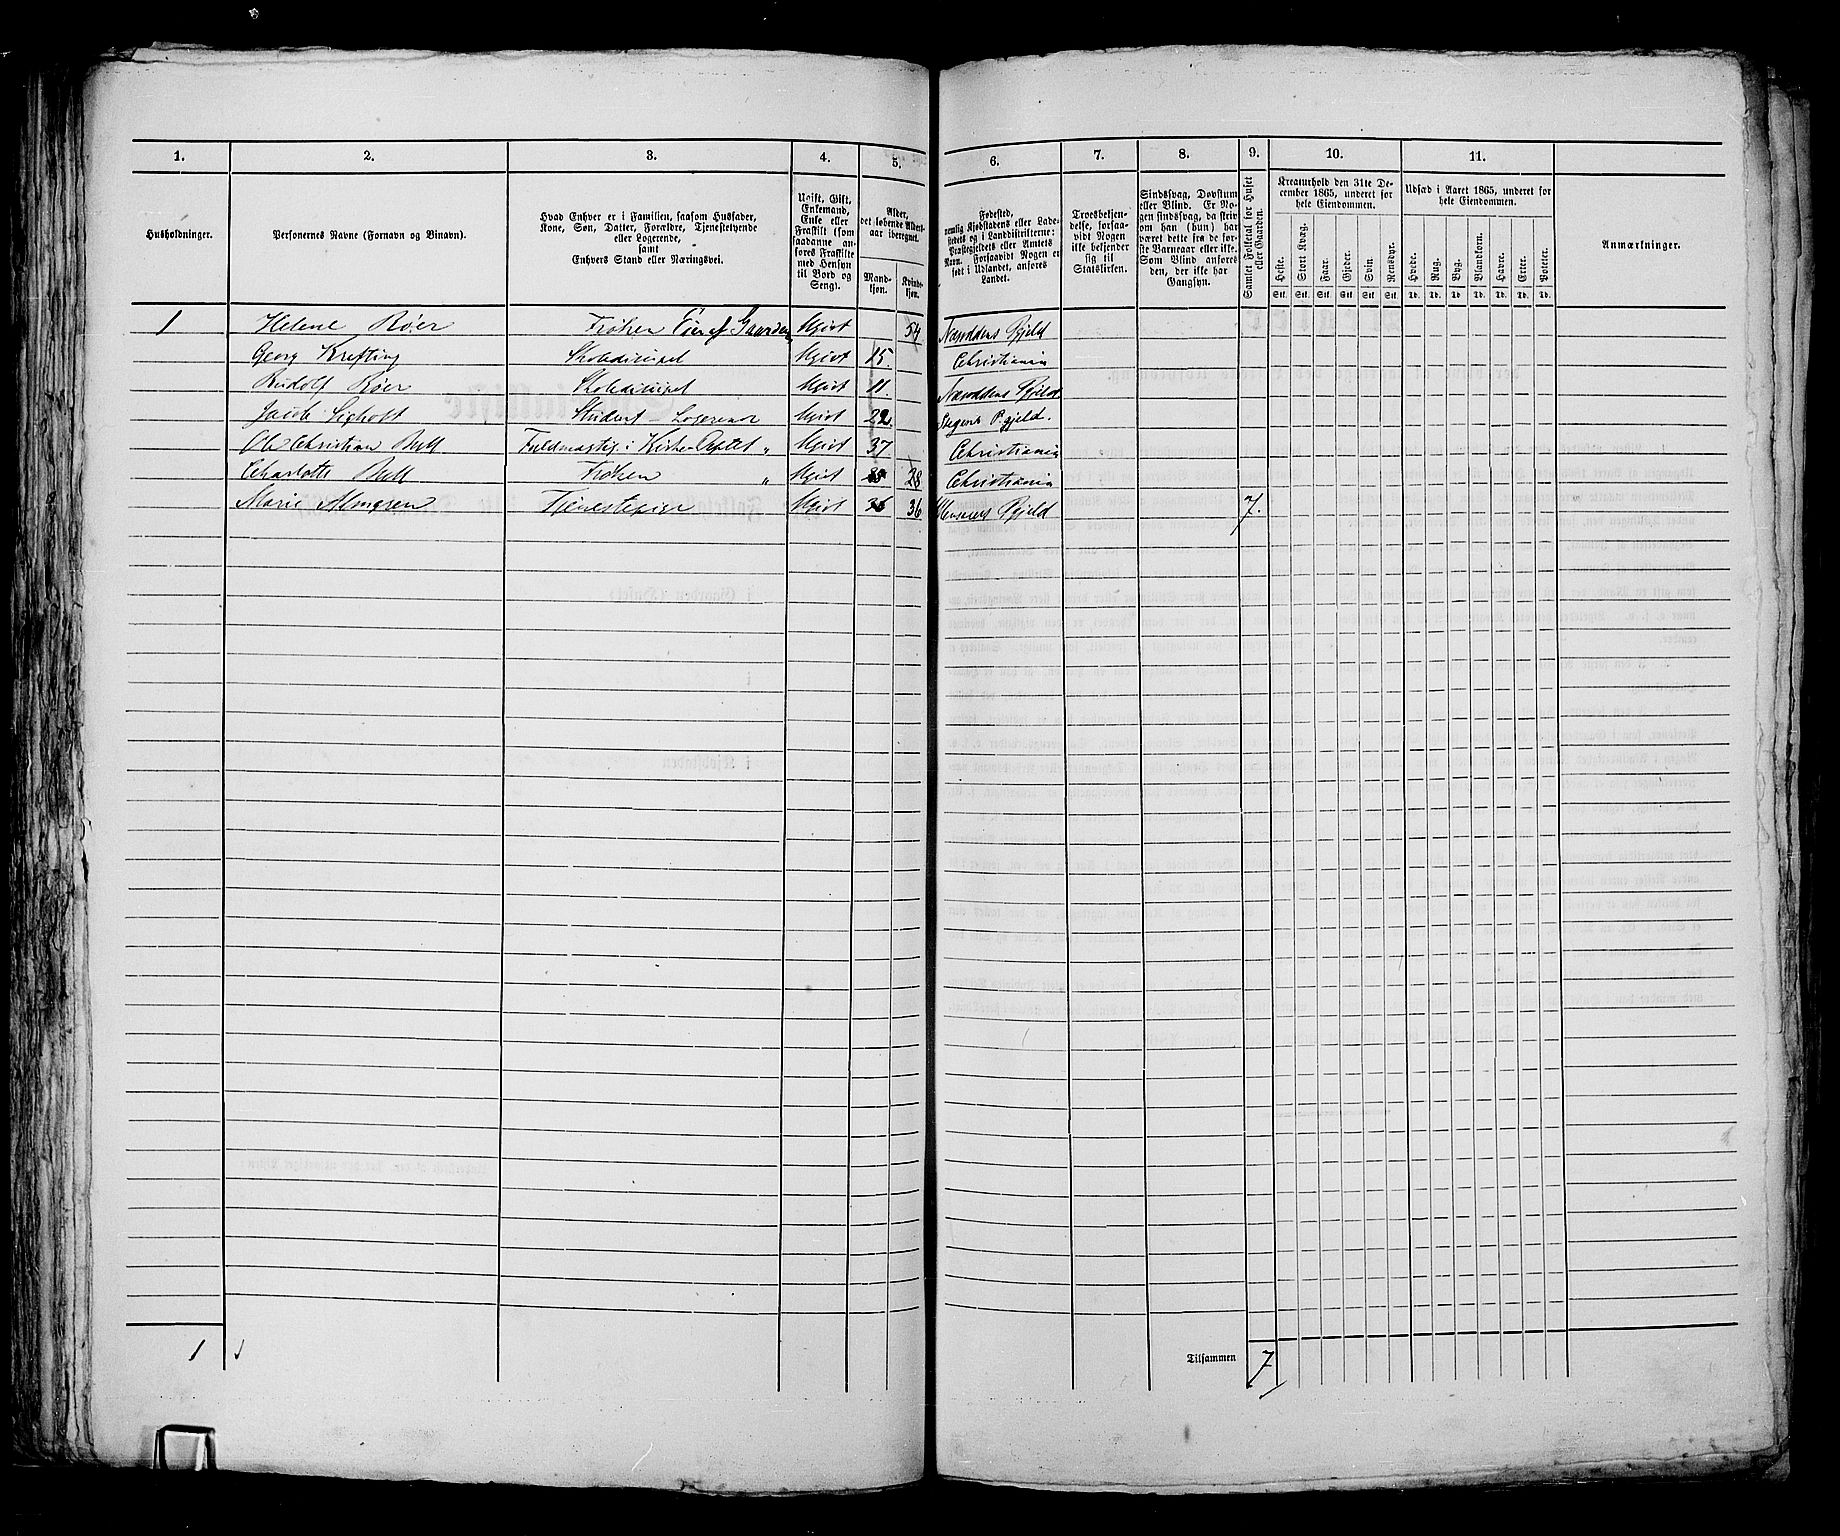 1. 2. 3. 4. 5. 6. 7. 8. 9. 10. 11.
Husholdninger.
Personernes Navne (Fornavn og Binavn).
Hvad Enhver er i Familien, saasom Husfader,
Kone, Søn, Datter, Forældre, Tjenestetyende
eller Logerende,
samt
Enhvers Stand eller Næringsvei.
Ugift, Gift,
Enkemand,
Enke eller
Fraskilt (som
saadanne an-
føres Fraskilte
med Hensyn
til Bord og
Seng).
Alder,
det løbende Alders-
aar iberegnet.
Mand-
kjøn.
Kvinde-
kjøn.
Fødested,
nemlig Kjøbstadens eller Lade-
stedets og i Landdistrikterne:
Præstegjeldets eller Amtets
Navn. Forsaavidt Nogen er
født i Udlandet, anføres
Landet.
Troesbekjen-
delse, forsaa-
vidt Nogen
ikke bekjender
sig til
Statskirken.
Sindssvag, Døvstum
eller Blind. Er No-
gen sindssvag, da skriv
om han (hun) har
været dette fra de før-
ste Barneaar eller ikke.
Som Blind anføres
den, der ikke har
Gangsyn.
Samlet Folketal for Huset
eller Gaarden.
Kreaturhold den 31te De-
cember 1865, underet for
hele Eiendommen.
Heste. Stort Kvæg. Faar. Gjeder. Svin. Rensdyr.
Stk. Stk. Stk. Stk. Stk. Stk.
Udsæd i Aaret 1865, underet for
hele Eiendommen.
Hvede. Rug. Byg. Blandkorn. Havre. Erter. Poteter.
Td. Td. Td. Td. Td. Td. Td.
Anmærkninger.
1 Helene Röer Frøken Eier af Gaarden Ugivt 54 Næsoddens Pgjeld
Georg Krefting Skoledisipel Ugivt 15. Christiania
Rudolf Röer Skoledisipel Ugivt 11. Næsoddens Pgjeld
Jacob Sigholt Student Logerende Ugivt 22. P.gjeld.
Ole Christian Bull Fuldmægtig i Kirke Deptet „ Ugivt 37 Christiania
Charlotte Bull Frøken „ Ugivt 28 Christiania
Marie Tjenestepige Ugivt 36 36 Pgjeld 7.
1
Tilsammen 7